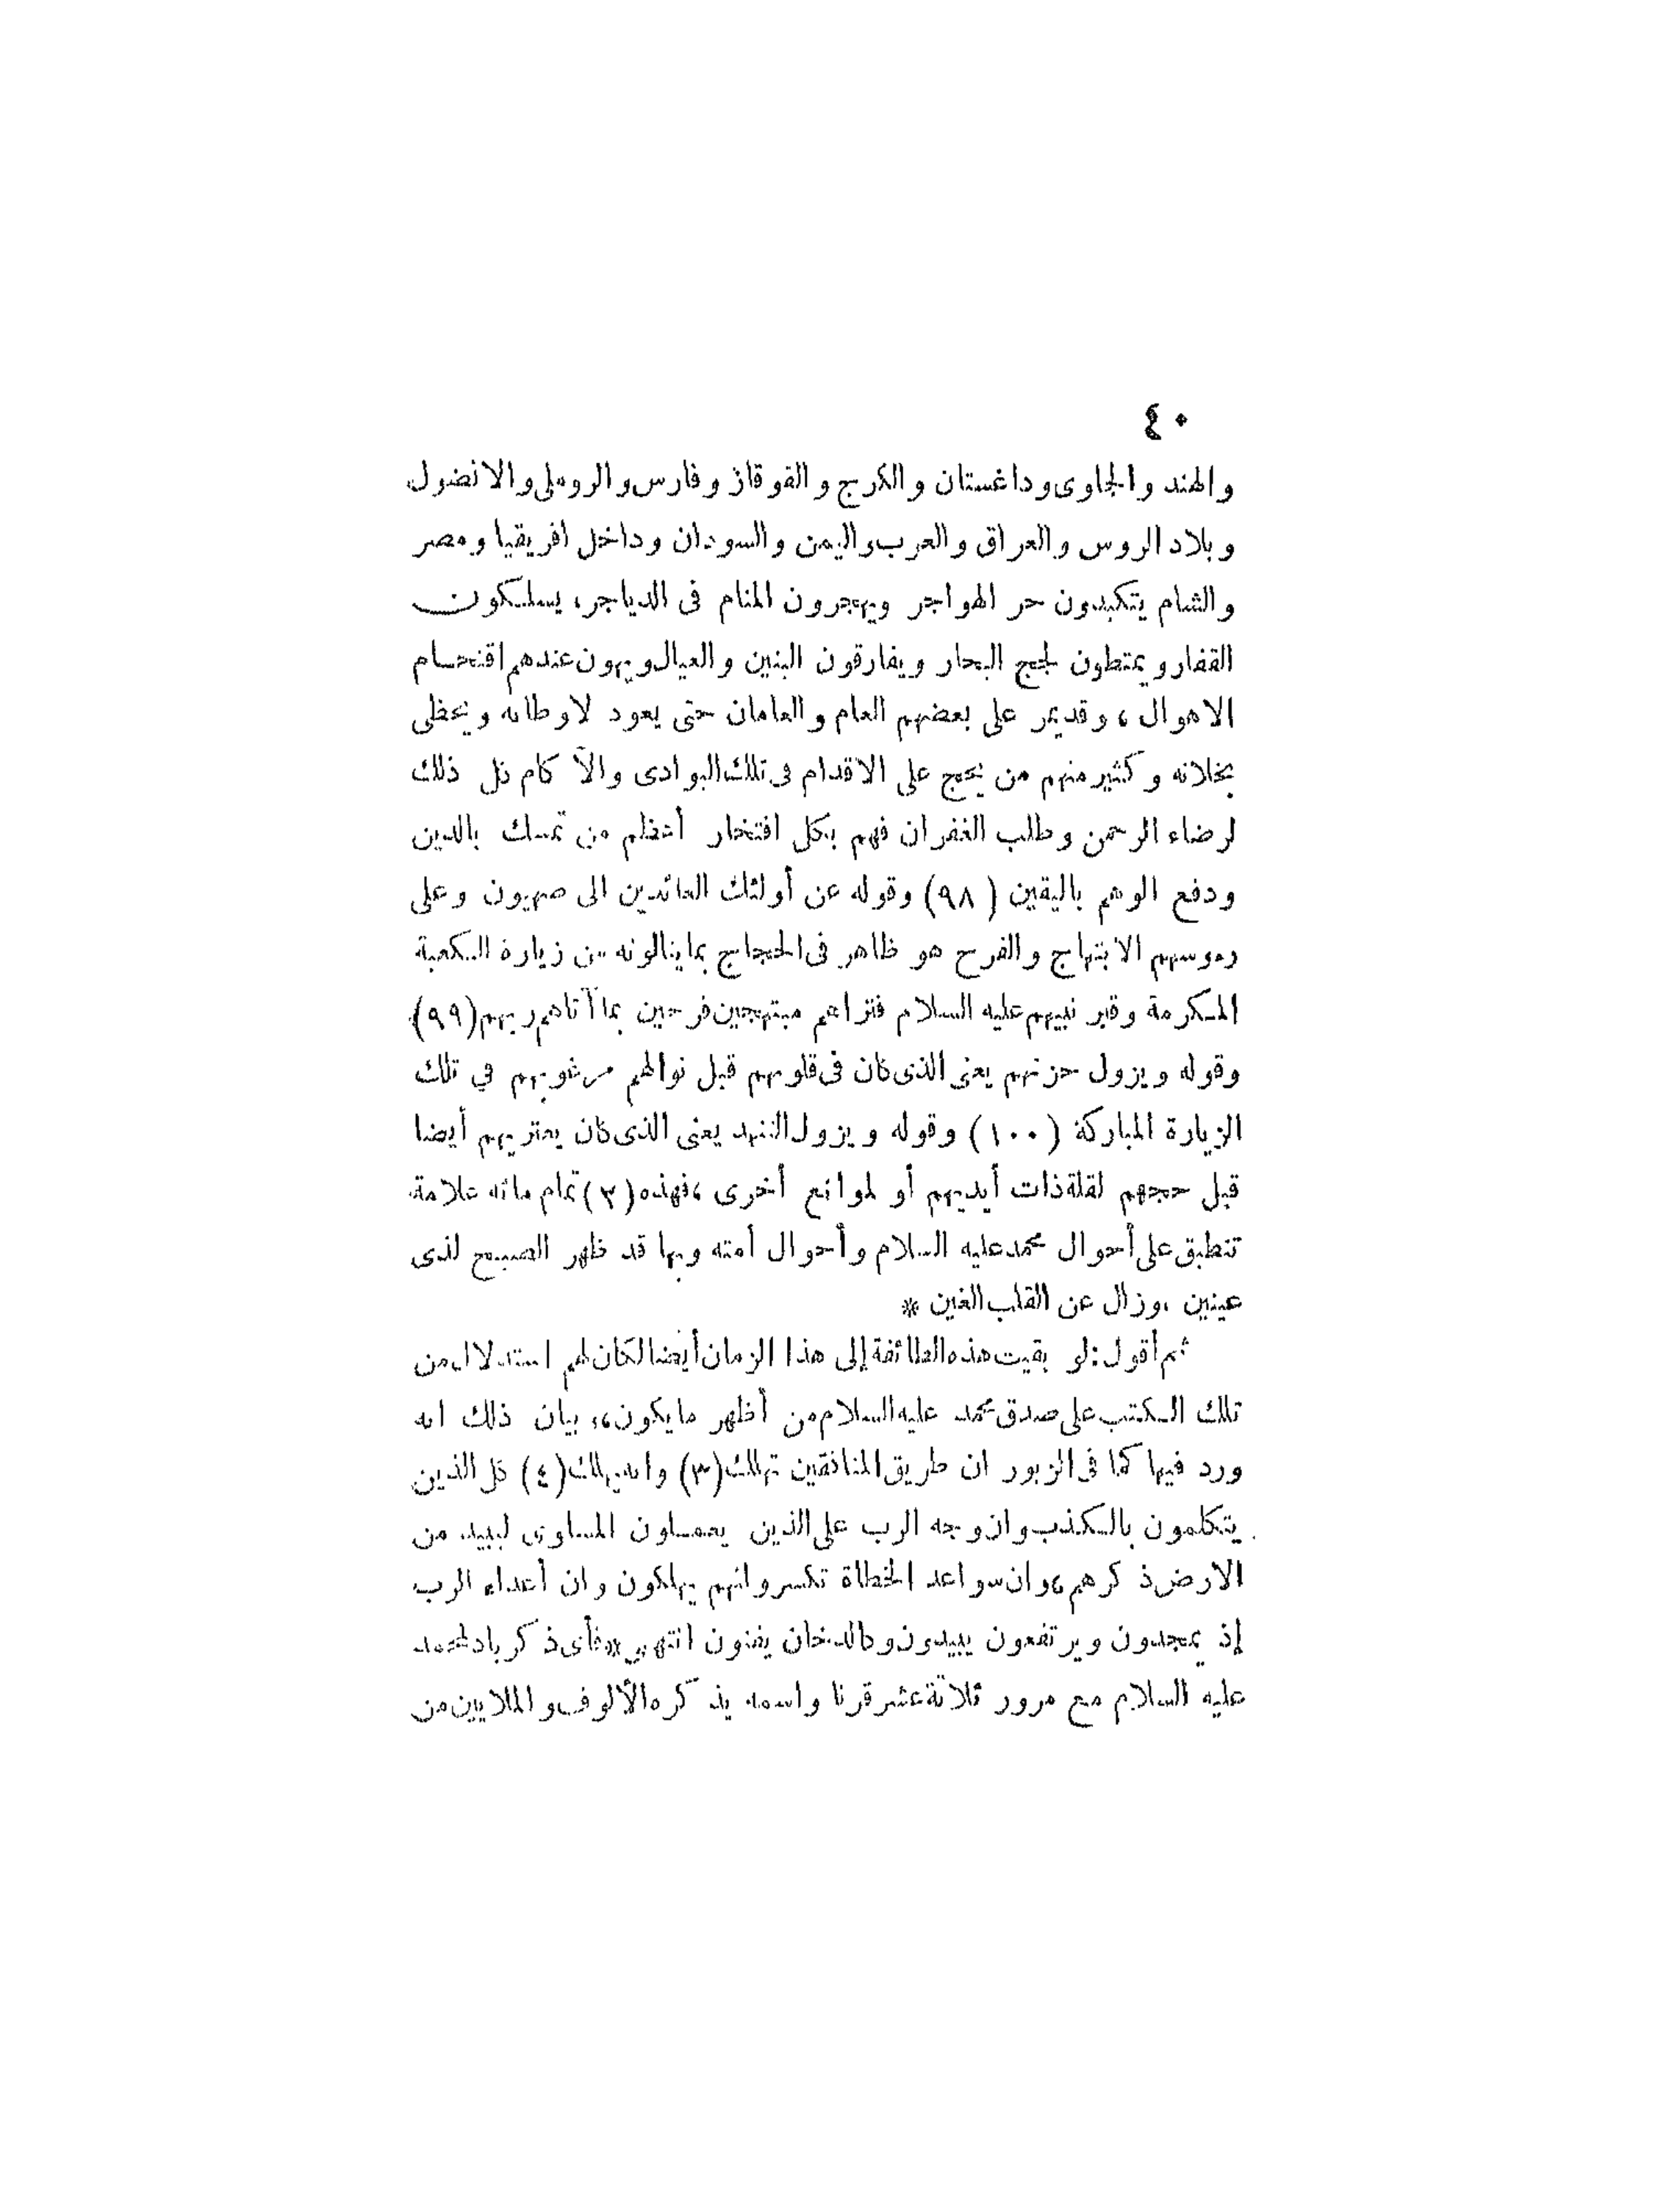 ٤٠
والهند والجاوى وداغستان والكرج والقوقاز وفارس والروملى والانضول
وبلاد الروس والعراق والعرب واليمن والسودان وداخل افريقيا ومصر
والشام يتكبدون حر الهواجر ويهجرون المنام فى الدياجر، يسلكون
القفار ويمتطون لجج البحار ويفارقون البنين والعيال ويهون عندهم اقتحام
الاهوال، وقديمر على بعضهم العام والعامان حتى يعود لاوطانه ويحظى
بخلانه وكثير منهم من يحج على الاقدام فى تلك البوادى والآكام كل ذلك
لرضاء الرحمن وطلب الغفران فهم بكل افتخار أعظم من تمسك بالدين
ودفع الوهم باليقين (٩٨) وقوله عن أولئك العائدين الى صهيون وعلى
رءوسهم الابتهاج والفرح هو ظاهر فى الحجاج بما ينالونه من زيارة الكعبة
المكرمة وقبر نبيهم عليه السلام فتراهم مبتهجين فرحين بما آتاهم ربهم (٩٩)
وقوله ويزول حزنهم يعنى الذى كان فى قلوبهم قبل نوالهم مرغوبهم في تلك
الزيارة المباركة (١٠٠) وقوله ويزول التنهد يعنى الذى كان يعتريهم أيضا
قبل حجهم لقلة ذات أيديهم أو لموانع أخرى، فهذه (٢) تمام مائه علامة
تنطبق على أحوال محمد عليه السلام وأحوال أمته وبها قد ظهر الصبح لذى
عينين، وزال عن القلب الغين *
ثم أقول: لو بقيت هذه الطائفة إلى هذا الزمان أيضا لكان لهم استدلال من
تلك الكتب على صدق محمد عليه السلام من أظهر ما يكون، بيان ذلك انه
ورد فيها كما فى الزبور ان طريق المنافقين تهلك (٣) وانه يهلك (٤) كل الذين
يتكلمون بالكذب وان وجه الرب على الذين يعملون المساوى ليبيد من
الارض ذكرهم، وان سواعد الخطاة تكسر وانهم يهلكون وان أعداء الرب
إذ يمجدون ويرتفعون يبيدون وكالدخان يفنون انتهى * فأى ذكر باد لمحمد
عليه السلام مع مرور ثلاثة عشر قرنا واسمه يذكره الألوف والملايين من